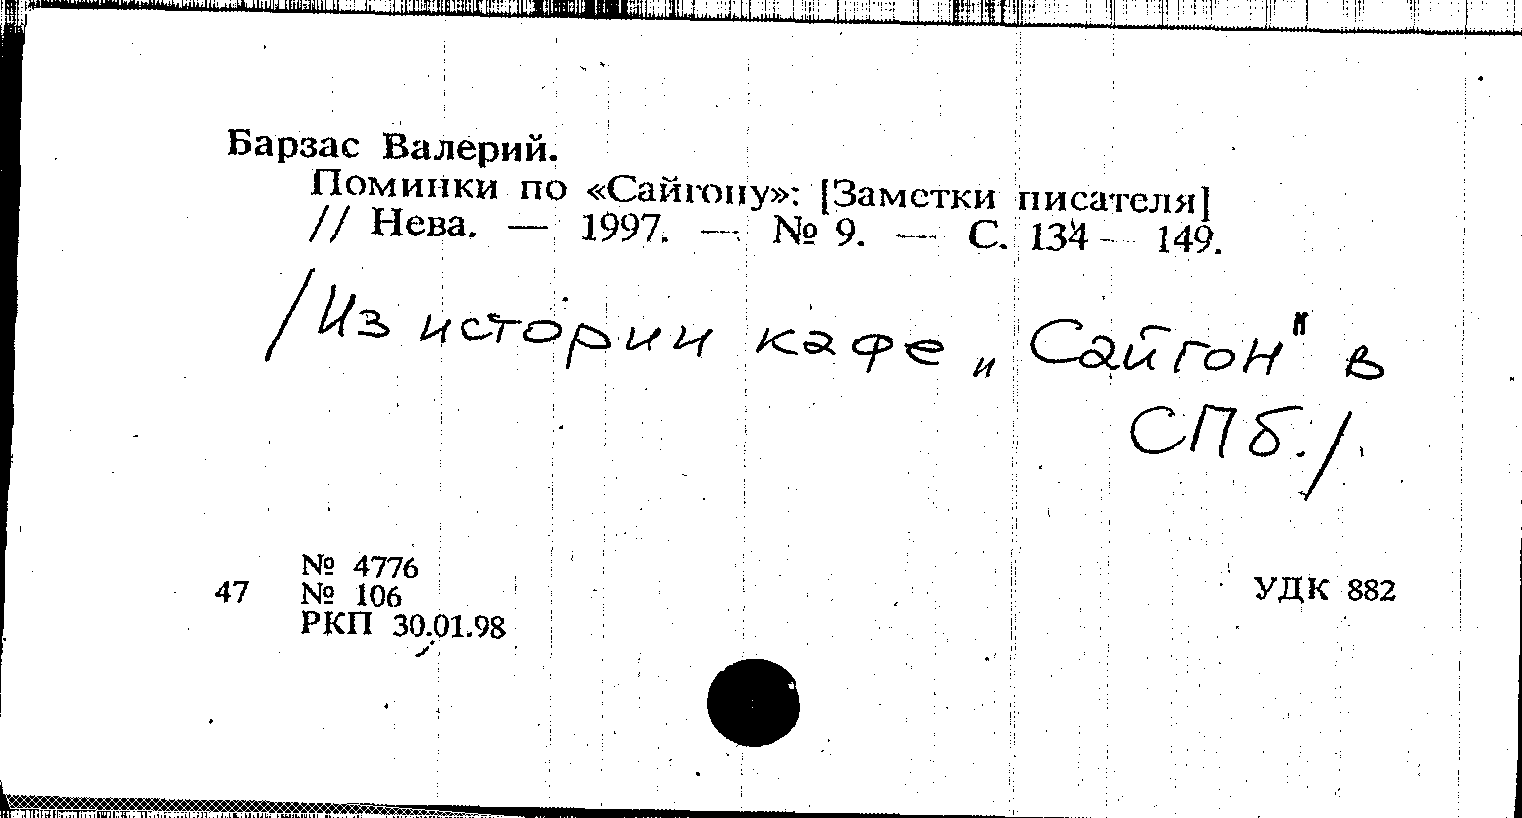 Барзас Валерий.
Поминки по «Сайгону»: [Заметки писателя]
// Нева. — 1997. — № 9. — С. 134 — 149.
/Из истории кафе „Сайгон" в
СПб./.
№ 4776
47 № 106 УДК 882
РКП 30.01.98